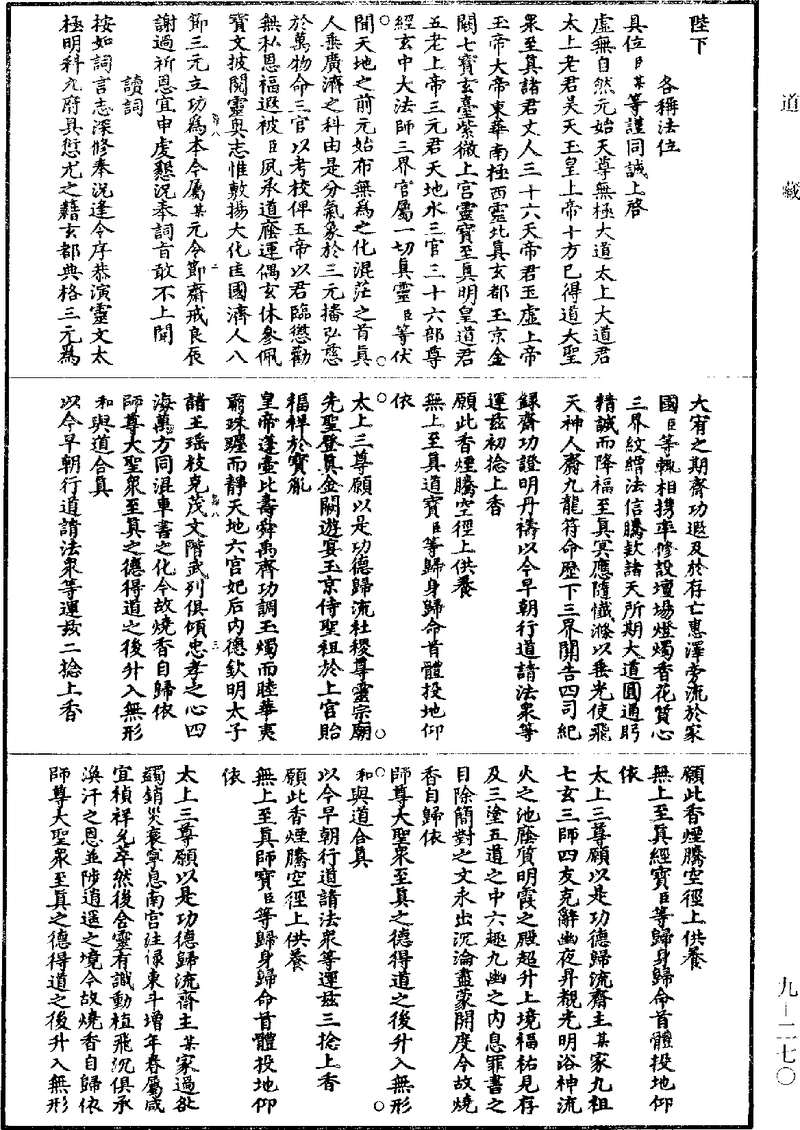 道藏
陛下
各稱法位
具位臣某等謹同誠上啓
虛無自然元始天尊無極大道太上大道君
太上老君昊天玉皇上帝十方已得道大聖
衆至真諸君丈人三十六天帝君玉虛上帝
玉帝大帝東華南極西靈北真玄都玉京金
闕七寶玄臺紫微上宮靈寶至真明皇道君
五老上帝三元君天地水三官三十六部尊
經玄中大法師三界官屬一切真靈臣等伏
聞天地之前元始布無為之化混茫之首真
人垂廣濟之科由是分氣象於三元播弘慈
於萬物命三官以考校俾五帝以君臨懲勸
無私恩福遐被臣夙承道廕運偶玄休參佩
寶文披閱靈奧志惟敷揚大化匡國濟人八
節三元立功為本今屬某元令節齋戒良辰
謝過祈恩宜申虔懇況奉詞旨敢不上聞
讀詞
按如詞言志深修奉況逢令序恭演靈文太
極明科九府具愆尤之籍玄都典格三元為
大宥之期齋功遐及於存亡惠澤旁流於家
國臣等輒相攜率修設壇場燈燭香花質心
三界紋繒法信騰欵諸天所期大道圓通眄
精誠而降福至真冥應隨懺滌以垂光使飛
天神人齋九龍符命歷下三界開告四司紀
錄齋功證明丹禱以今早朝行道請法衆等
運茲初捻上香
願此香煙騰空徑上供養
無上至真道寶臣等歸身歸命首體投地仰
依
太上三尊願以是功德歸流社稷尊靈宗廟
先聖登真金闕遊宴玉京侍聖祖於上宮貽
福祥於寶胤
皇帝蓬壼比壽舜禹齊功調玉燭而睦華夷
翦珠躔而靜天地六宮妃后內德欽明太子
諸王瑤枝克茂文階武列俱傾忠孝之心四
海萬方同混車書之化今故燒香自歸依
師尊大聖衆至真之德得道之後升入無形
和與道合真
以今早朝行道請法衆等運茲二捻上香
願此香煙騰空徑上供養
無上至真經寶臣等歸身歸命首體投地仰
依
太上三尊願以是功德歸流齋主某家九祖
七玄三師四友克辭幽夜昇覩光明浴神流
火之池廕質明霞之殿超升上境福祐見存
及三塗五道之中六趣九幽之內息罪書之
目除簡對之文永出沉淪盡蒙開度今故燒
香自歸依
師尊大聖衆至真之德得道之後升入無形
和與道合真
以今早朝行道請法衆等運茲三捻上香
願此香煙騰空徑上供養
無上至真師寶臣等歸身歸命首體投地仰
依
太上三尊願以是功德歸流齋主某家過愆
蠲銷災衰寧息南宮注祿東斗增年眷屬咸
宜禎祥允萃然後含靈有識動植飛沉俱承
渙汗之恩並陟逍遥之境今故燒香自歸依
師尊大聖衆至真之德得道之後升入無形
九—二七〇